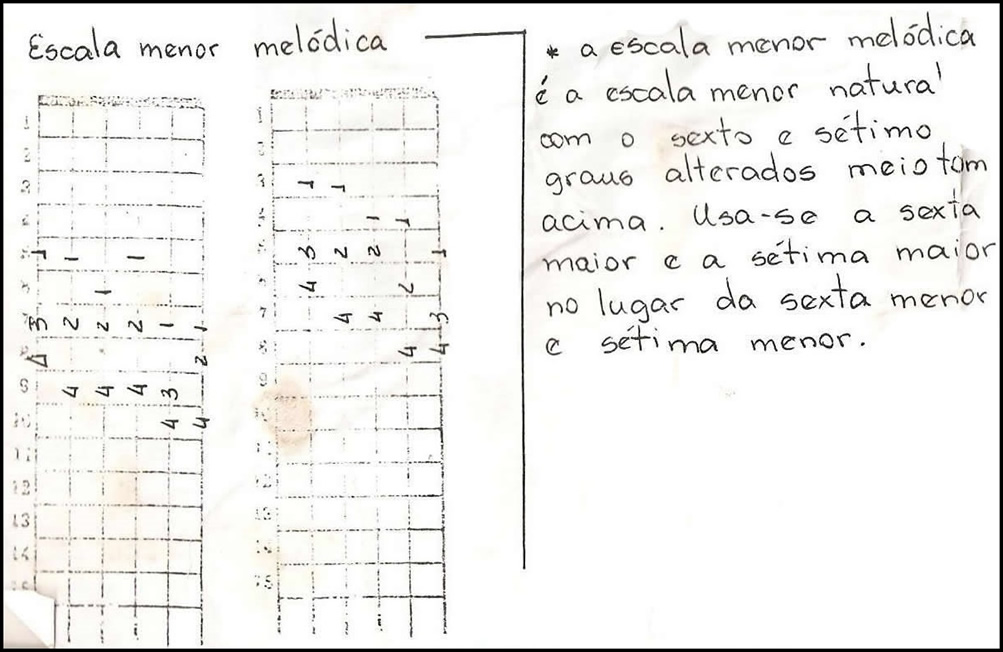 Escala menor melódica
* a escala menor melódica
é a escala menor natural
com o sexto e sétimo
graus alterados meio tom
acima. Usa-se a sexta
maior e a sétima maior
no lugar da sexta menor
e sétima menor.
1
2
3
1 1 1
1
3 2 2 2 1 1
7
2
9
4 4 4 3
4 4
11
12
13
14
1
1 1
1 1
3 2 2 1
4 2
7
4 4 3
4 4
9